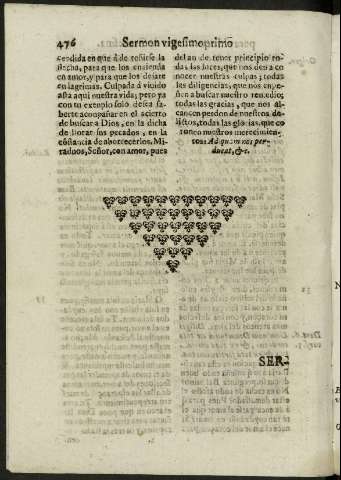 476 Sermon vigesimoprimo
cendida en que â de teñirse la
flecha, para que los encienda
en amor, y para que los dejate
en lagrimas. Culpada â vivido
asta aqui nuestra vida; pero ya
con tu exemplo solo desea sa-
berte acompañar en el acierto
de buscar a Dios, en la dicha
de llorar sus pecados, en la
cõstancia de aborrecerlos. Mi-
radnos, Señor, con amor, pues
del an de tener principio to-
das las luces, que nos den a co-
nocer nuestras culpas; todas
las diligencias, que nos en
sen a buscar nuestro remedio;
todas las gracias, que nos al-
cancen perdon de nuestros de-
litos, todas las glorias, que co
ronen nuestros merecimien-
tos: Ad quam nos per-
ducat, &c.
SER-